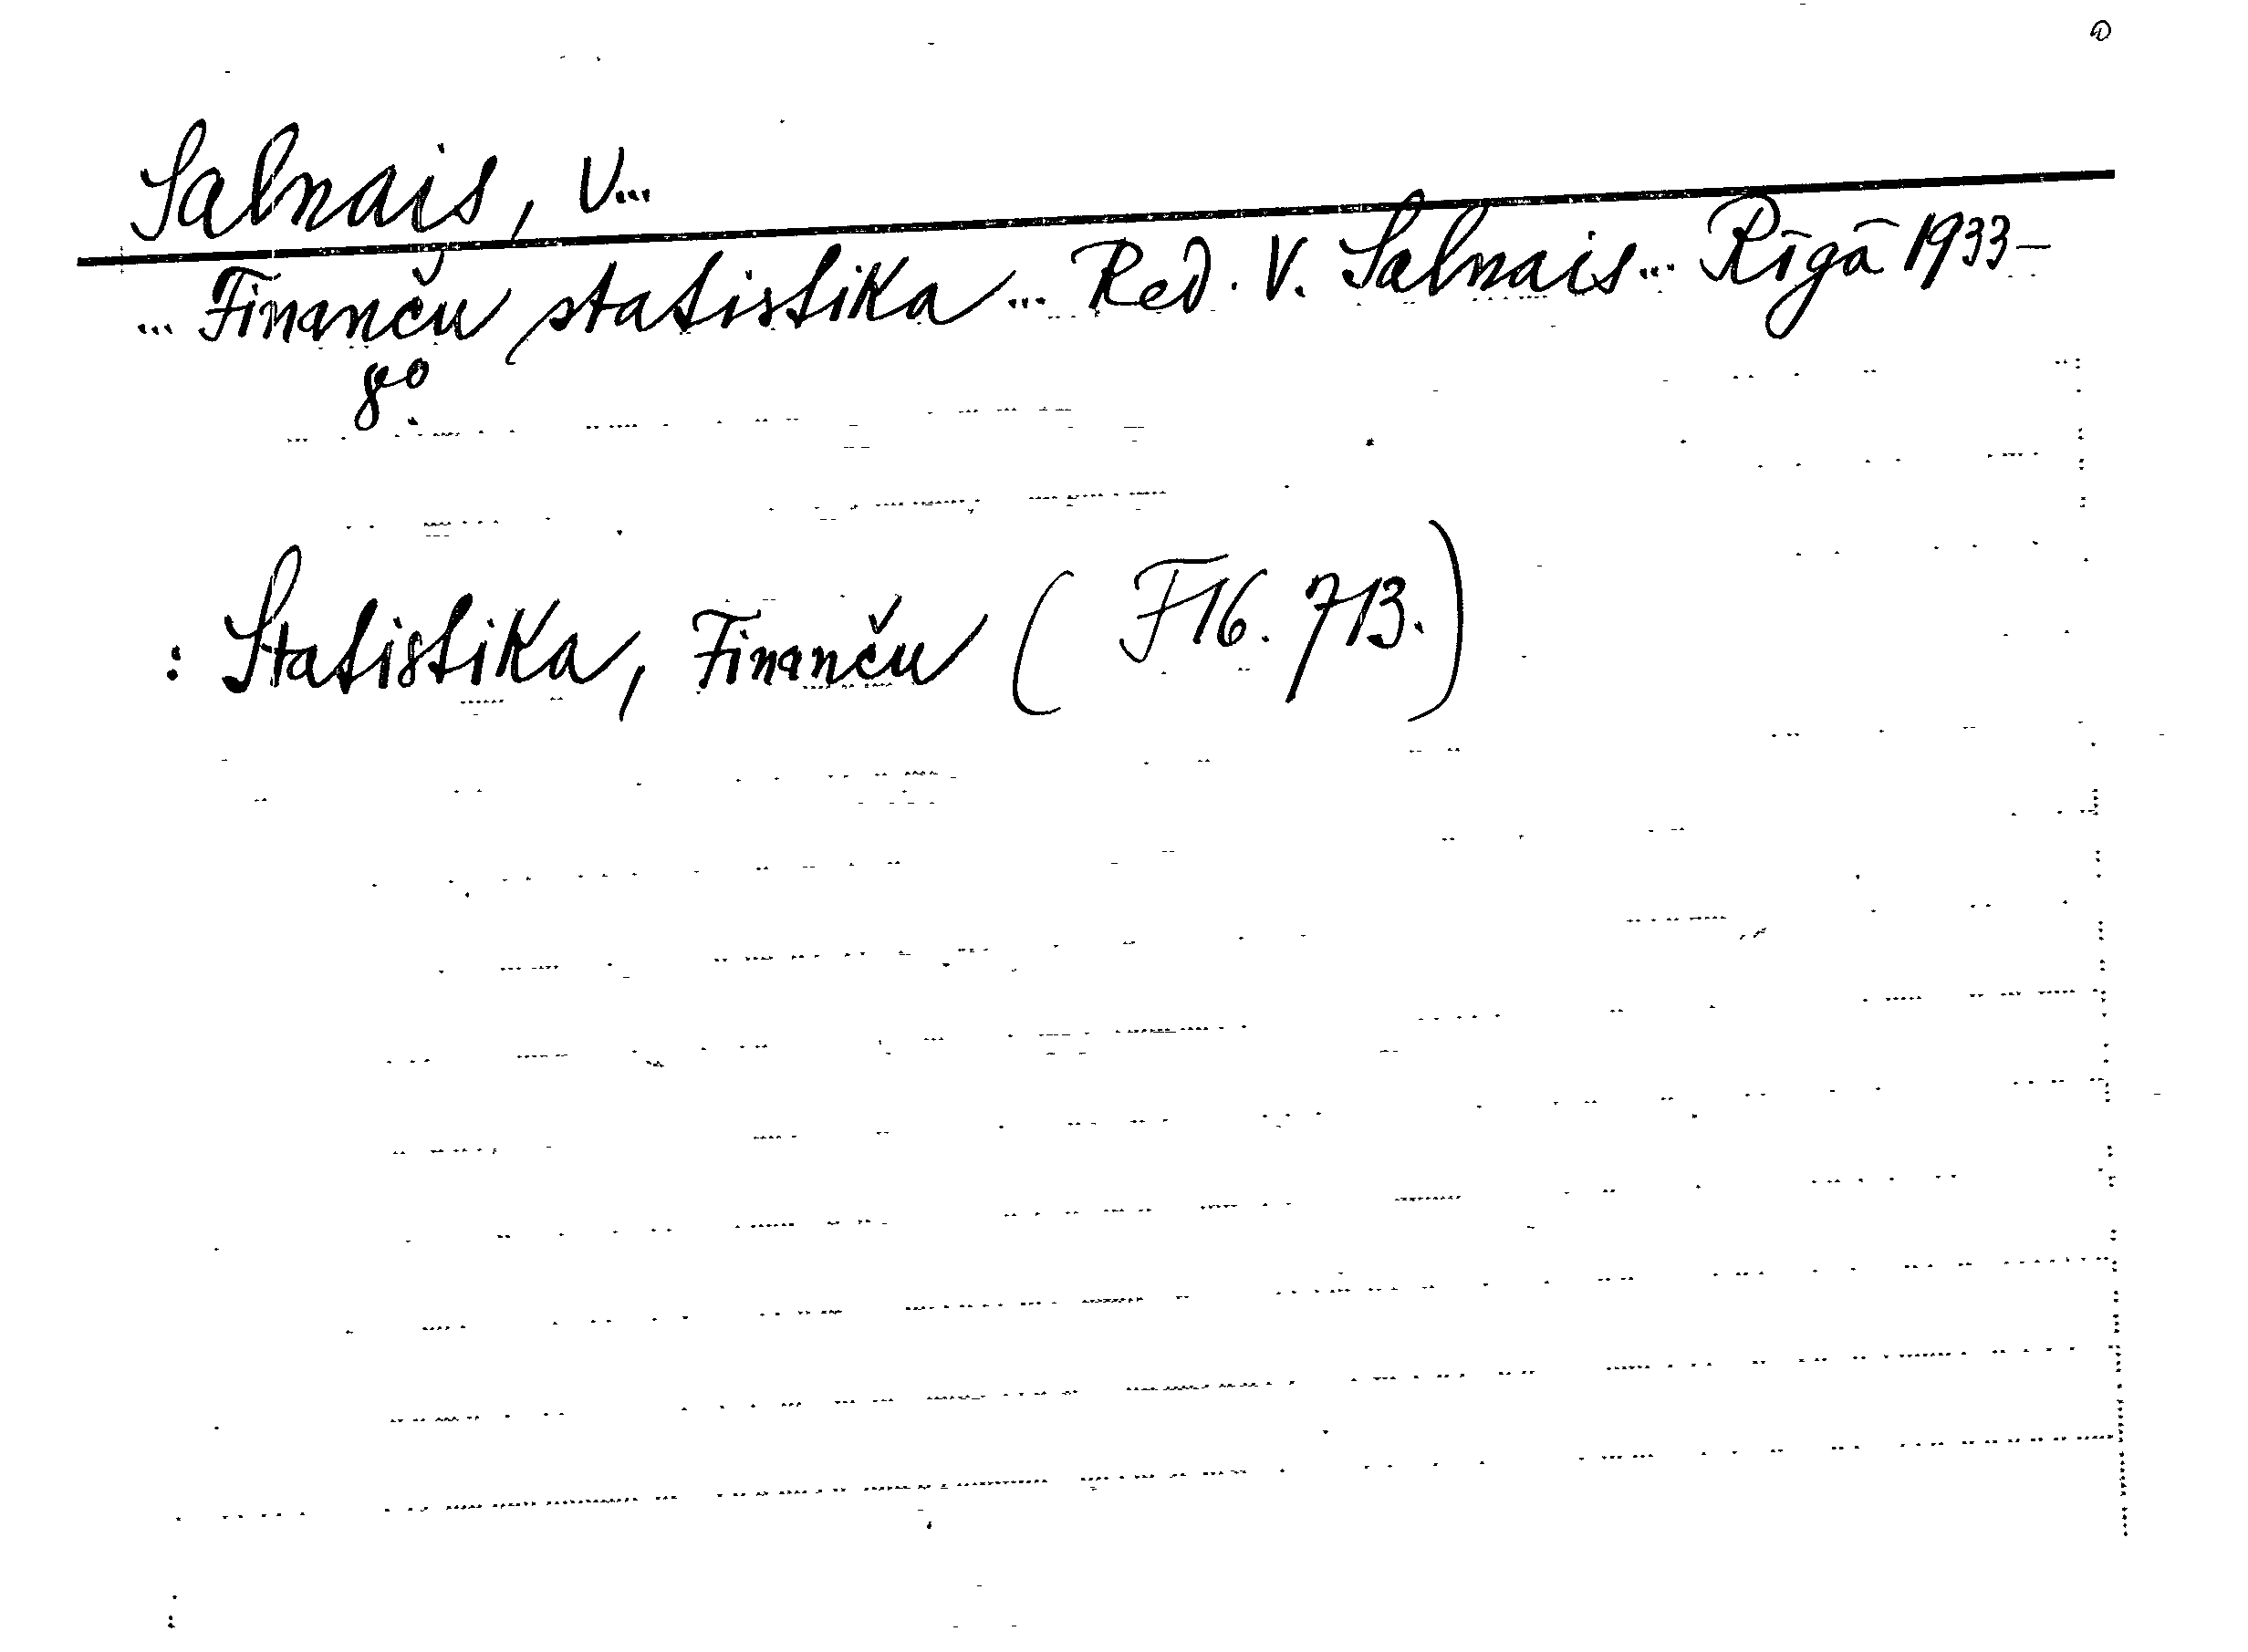 Salnais, V...
... Finanču statistika ... Red. V. Salnais ... Rīgā 1933-
8°.
: Statistika, Finanču (F16.713.)